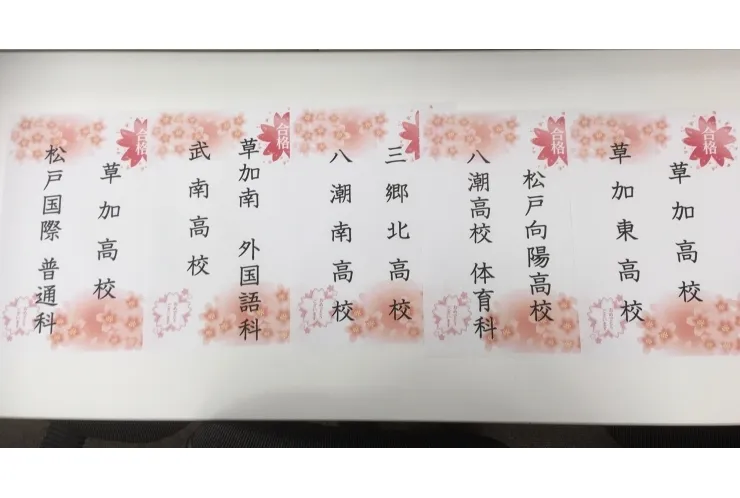 合格
草加高校
草加東高校
合格
松戸向陽高校
八潮高校 体育科
合格
三郷北高校
八潮南高校
合格
草加南 外国語科
武南高校
合格
草加高校
松戸国際 普通科